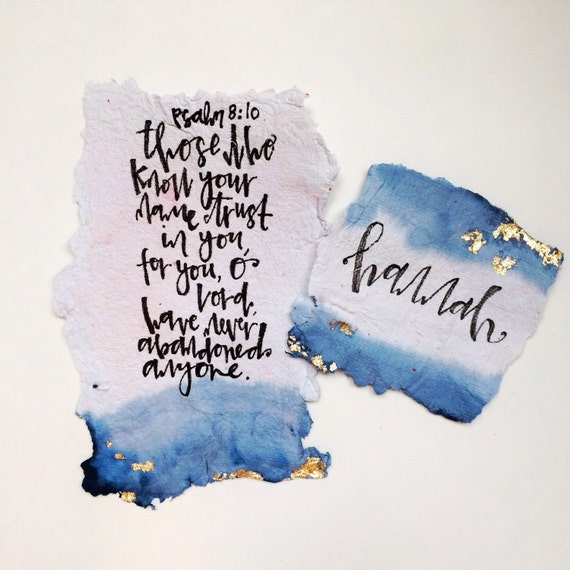 psalm 8:10
those who
know your
name trust
in you,
for you, O
Lord,
have never
abandoned
anyone.
hannah